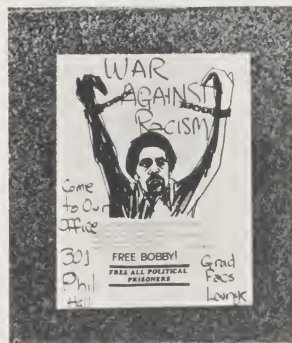 WAR
AGAINST
RACISM
Come
to Our
Office
301
Phil
Hall
FREE BOBBY!
FREE ALL POLITICAL
PRISONERS
Grad
Facs
Lounge